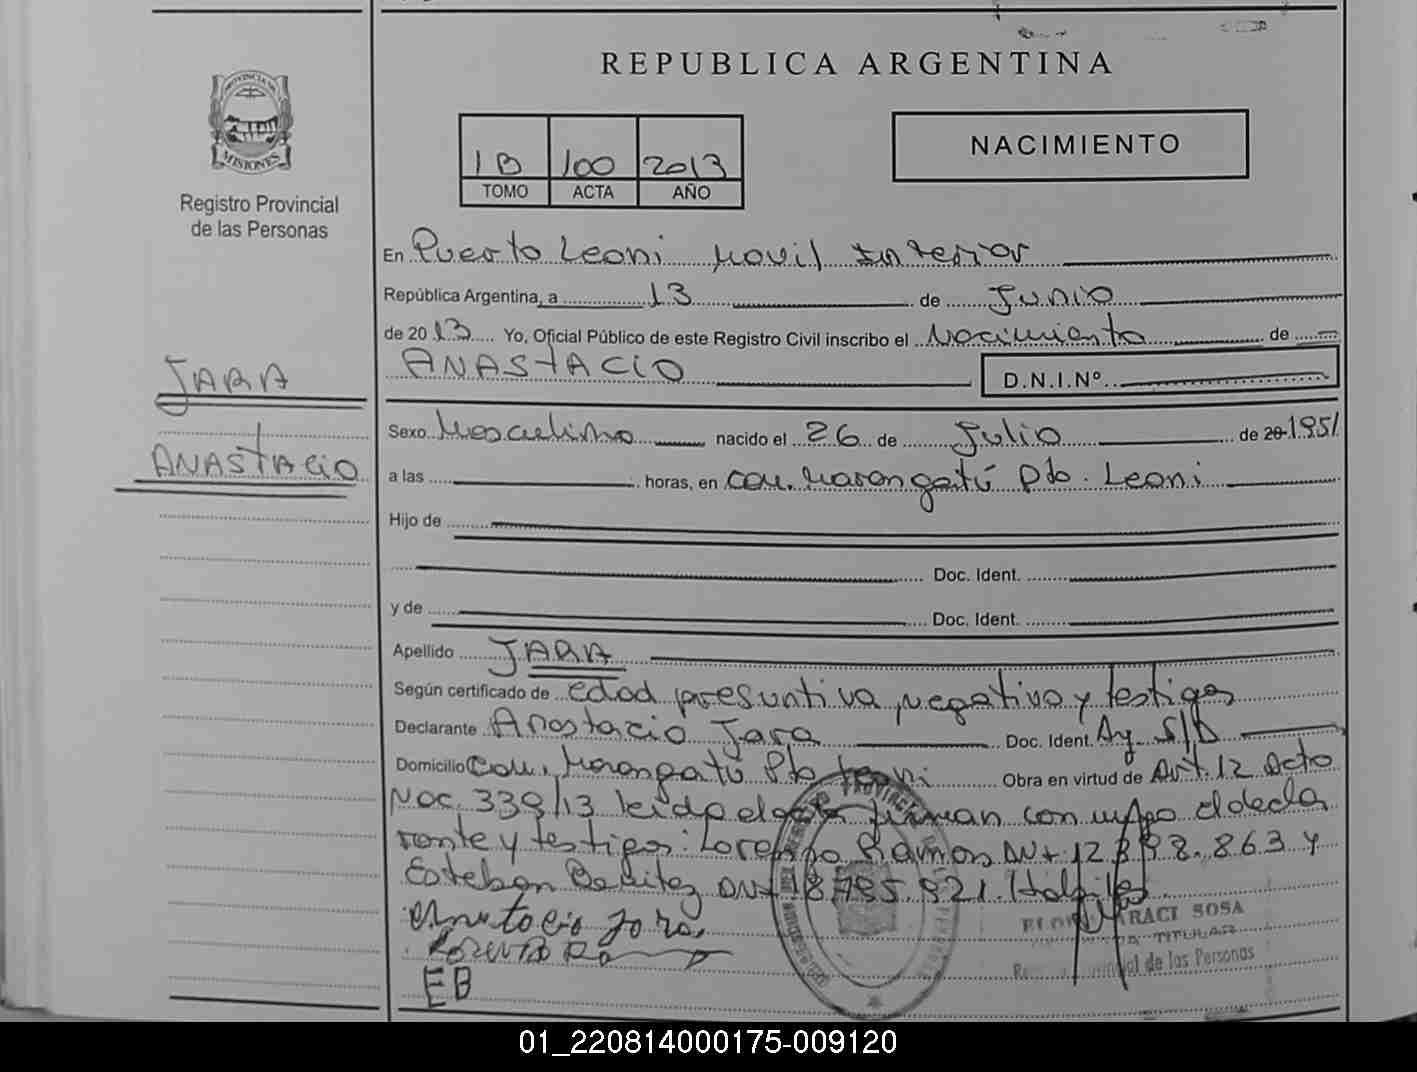 REPUBLICA ARGENTINA
PROVINCIA DE
MISIONES
Registro Provincial
de las Personas
1B 100 2013
TOMO ACTA AÑO
NACIMIENTO
En Puerto Leoni Movil Interior
República Argentina, a 13 de Junio
de 2013 Yo, Oficial Público de este Registro Civil inscribo el Nacimiento de
ANASTACIO
D.N.I.Nº
JARA
ANASTACIO
Sexo Masculino nacido el 26 de Julio de 20 1951
a las horas, en Com. Marangatú Pto. Leoni
Hijo de
Doc. Ident.
y de Doc. Ident.
Apellido JARA
Según certificado de edad presuntiva, negativo y testigos
Declarante Anastacio Jara Doc. Ident. Ag. S/D
Domicilio Com. Marangatú Pto Leoni Obra en virtud de Art. 12 Acto
Nac. 339/13 Leida el acta firman conmigo el decla
rante y testigos: Lorenzo Ramos DNI 12.898.863 y
Esteban Benitez DNI 18.785.921.
Anastacio Jara
EB
ARACI SOSA
TITULAR
Provincial de las Personas
01_220814000175-009120